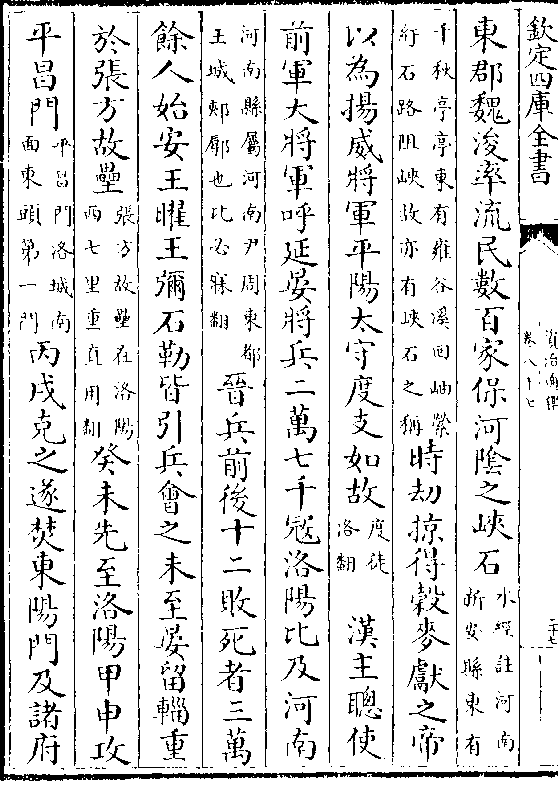 欽定四庫全書
資治通鑑
卷八十七
二十七
東郡魏浚率流民數百家保河陰之峽石水經註河南新安縣東有
千秋亭亭東有雍谷溪回岫縈紆石路阻峽故亦有峽石之稱時劫掠得穀麥獻之帝
以為揚威將軍平陽太守度支如故度徒洛翻　漢主聰使
前軍大將軍呼延晏將兵二萬七千冦洛陽比及河南
河南縣屬河南尹周東都王城郟鄏也比必寐翻晉兵前後十二敗死者三萬
餘人始安王曜王彌石勒皆引兵會之未至晏留輜重
於張方故壘張方故壘在洛陽西七里重直用翻癸未先至洛陽甲申攻
平昌門平昌門洛城南面東頭第一門丙戌克之遂焚東陽門及諸府